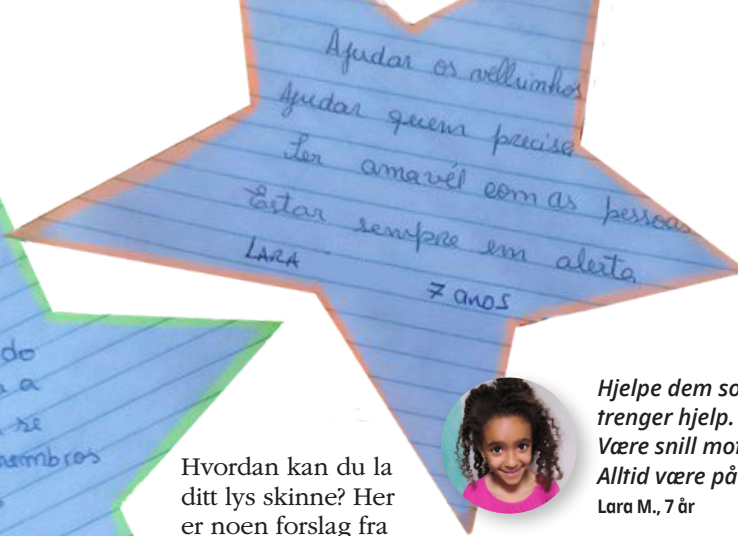 Ajudar os velhinhos
Ajudar quem precisa
Ser amavél com as pessoas
Estar sempre em alerta
LARA 7 anos
do
a
se
membros
Hvordan kan du la
ditt lys skinne? Her
er noen forslag fra
Hjelpe dem so
trenger hjelp.
Være snill mot
Alltid være på
Lara M., 7 år